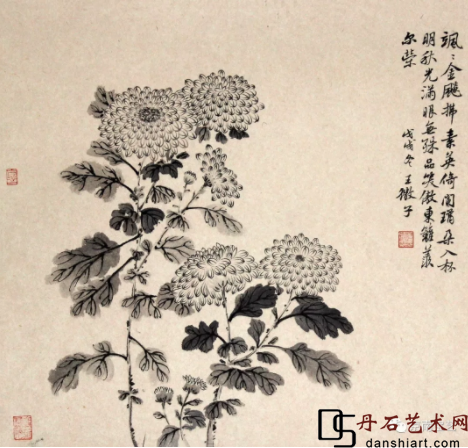 飒〻金飚拂素英倚阑璚朵入杯
明秋光满眼无殊品笑傲东篱羡
尔荣
戊戌冬 王微子
丹石艺术网
danshiart.com